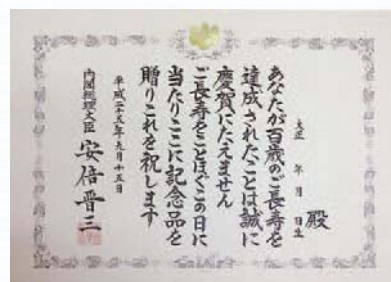 殿
大正 年 月 日生
あなたが百歳のご長寿を
達成されたことは誠に
慶賀にたえません
ご長寿をことほぐこの日に
当たりここに記念品を
贈りこれを祝します
平成二十五年九月十五日
内閣総理大臣 安倍晋三